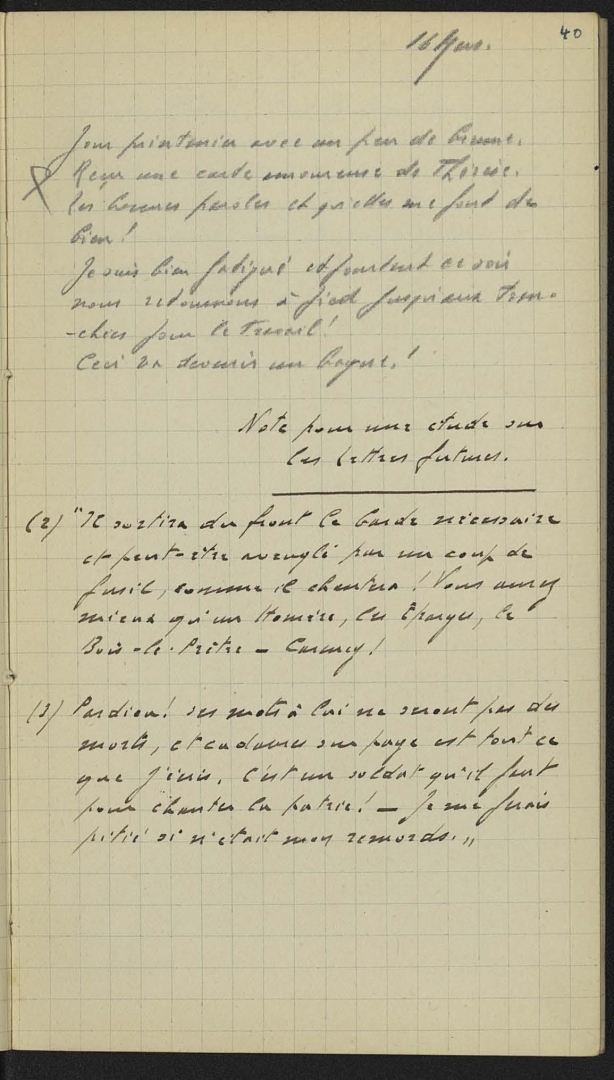 40
16 Mars.
Jour printanier avec un peu de brume.
Reçu une carte amoureuse de Thérèse.
Les bonnes paroles et qu'elles me font du
bien !
Je suis bien fatigué et pourtant ce soir
nous retournons à pied jusqu'aux tran-
-chées pour le travail !
Ceci va devenir un bagne. !
Note pour une étude sur
les lettres futures.
(2) "Il sortira du front le barde nécessaire
et peut-être aveuglé par un coup de
fusil, comme il chantera ! Vous aurez
mieux qu'un Homère, les Éparges, le
Bois-le-Prêtre — Carency !
(3) Pardieu ! ses mots à lui ne seront pas des
morts, et cadavres sur page est tout ce
que j'écris. C'est un soldat qu'il faut
pour chanter la patrie ! — Je me ferais
pitié si n'était mon remords. "